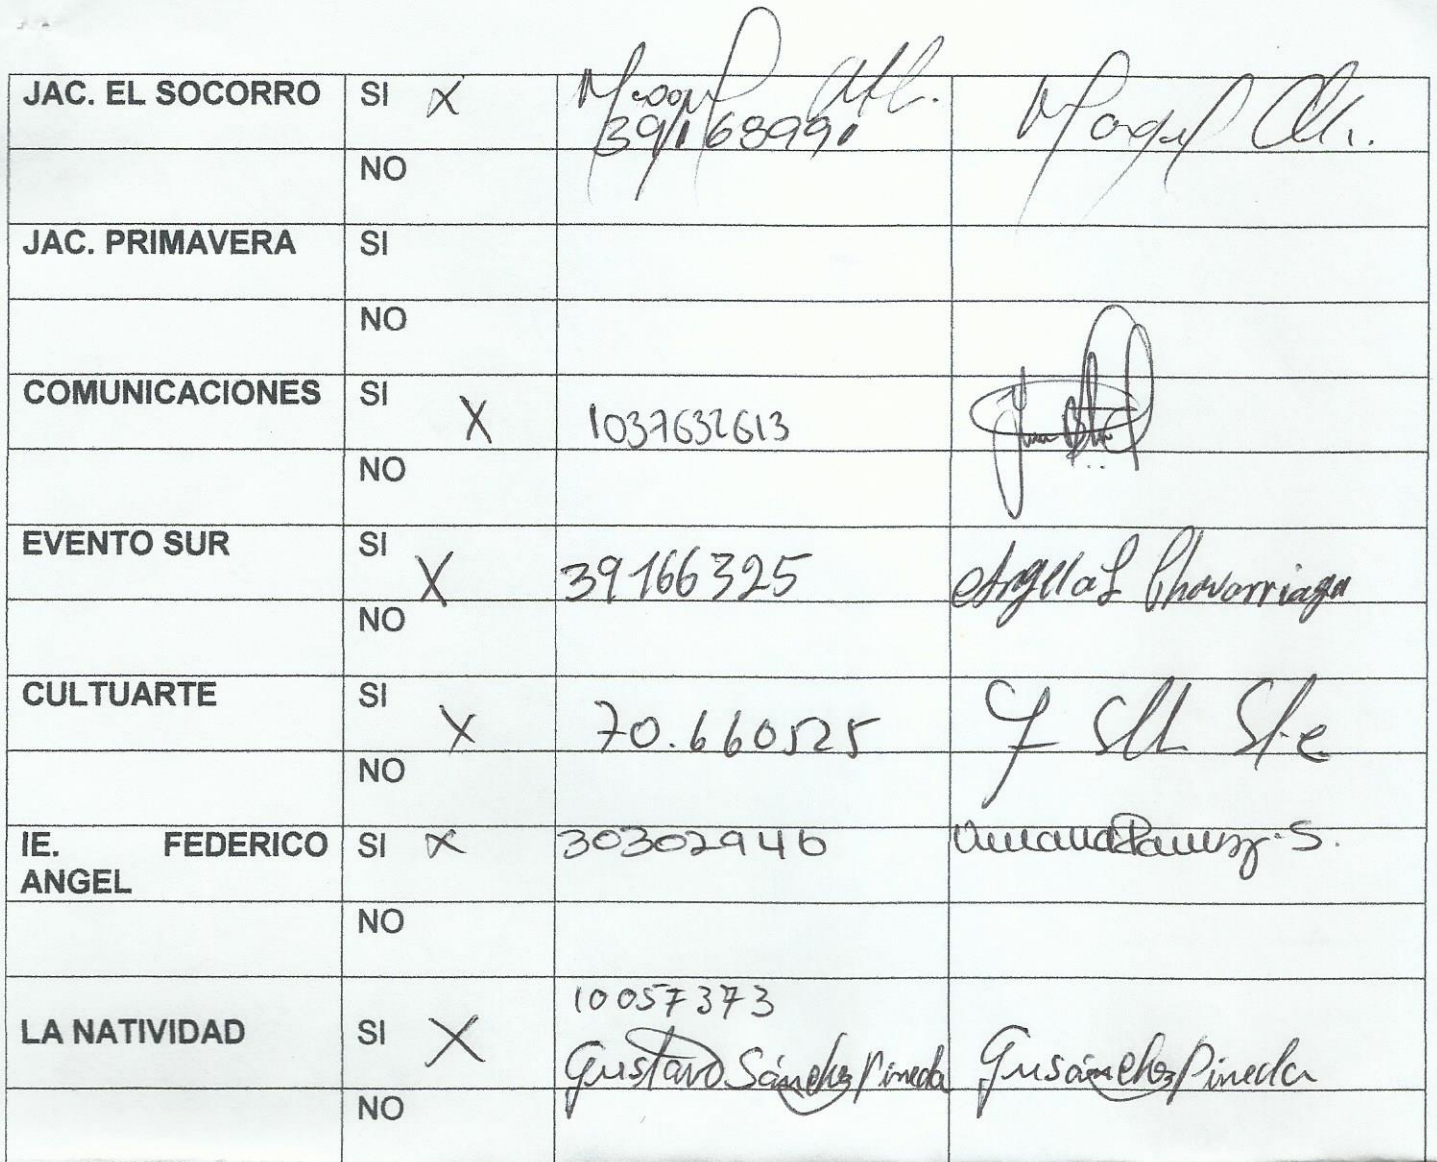 JAC. EL SOCORRO SI X
39168990
NO
JAC. PRIMAVERA SI
NO
COMUNICACIONES SI X 1037632613
NO
EVENTO SUR SI X 39166325 Angella L Chavarriaga
NO
CULTUARTE SI X 70.660525
NO
IE. FEDERICO SI X 30302946
ANGEL
NO
10057373
LA NATIVIDAD SI X Gustavo Sánchez Pineda Gusánchez Pineda
NO